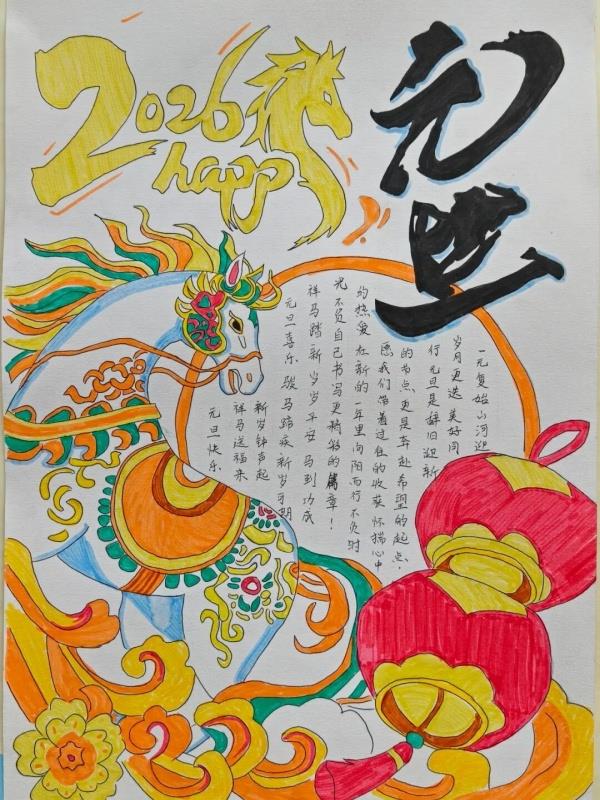 2026
happy
元旦
一元复始山河迎
岁月更迭 美好同
行元旦是辞旧迎新
的节点更是奔赴希望的起点,
愿我们带着过往的收获 怀揣心中
的热爱 在新的一年里向阳而行不负时
光不负自己书写更精彩的篇章!
祥马踏新 岁岁平安 马到功成
元旦喜乐 骏马 新岁可期
新岁钟声起
祥马送福来
元旦快乐